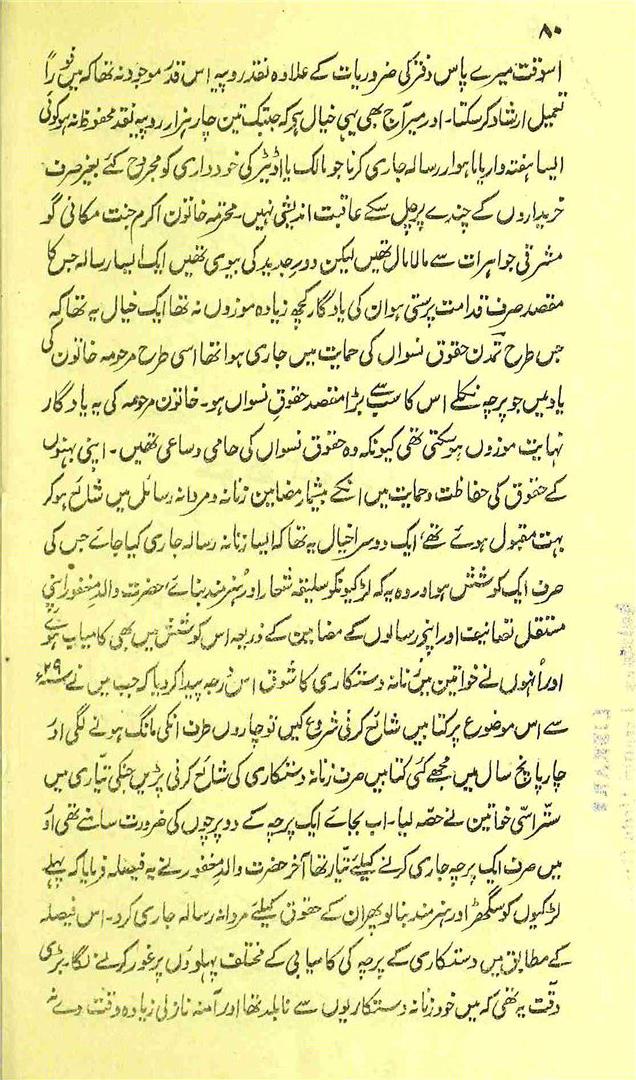 ۸۰
اسوقت میرے پاس دفتر کی ضروریات کے علاوہ نقد روپیہ اس قدر موجود نہ تھا کہ میں فوراً
تعمیل ارشاد کرسکتا۔ اور میرا آج بھی یہی خیال ہے کہ جبتک تین چار ہزار روپیہ نقد محفوظ نہ ہو کوئی
ایسا ہفتہ وار یا ماہوار رسالہ جاری کرنا جو مالک یا اڈیٹر کی خود داری کو مجروح کئے بغیر صرف
خریداروں کے چندے پر چل سکے عاقبت اندیشی نہیں۔ محترمہ خاتون اکرم جنت مکانی گو
مشرقی جواہرات سے مالا مال تھیں لیکن دور جدید کی بیوی تھیں ایک ایسا رسالہ جس کا
مقصد صرف قدامت پرستی ہو ان کی یادگار کچھ زیادہ موزوں نہ تھا ایک خیال یہ تھا کہ
جس طرح تمدن حقوق نسواں کی حمایت میں جاری ہوا تھا اسی طرح مرحومہ خاتون کی
یاد میں جو پرچہ نکلے اس کا سب سے بڑا مقصد حقوق نسواں ہو۔ خاتون مرحومہ کی یہ یادگار
نہایت موزوں ہوسکتی تھی کیونکہ وہ حقوق نسواں کی حامی و ساعی تھیں۔ اپنی بہنوں
کے حقوق کی حفاظت و حمایت میں انکے بیشمار مضامین زنانہ و مردانہ رسائل میں شائع ہوکر
بہت مقبول ہوئے تھے، ایک دوسرا خیال یہ تھا کہ ایسا زنانہ رسالہ جاری کیا جائے جس کی
صرف ایک کوشش ہو اور وہ یہ کہ لڑکیونکو سلیقہ شعار اور ہنرمند بنائے، حضرت والد مغفور اپنی
مستقل تصانیف اور اپنے رسالوں کے مضامین کے ذریعہ اس کوشش میں بھی کامیاب ہوئے
اور اُنہوں نے خواتین میں زنانہ دستکاری کا شوق اس درجہ پیدا کردیا کہ جب میں نے ۲۹ء
سے اس موضوع پر کتابیں شائع کرنی شروع کیں تو چاروں طرف انکی مانگ ہونے لگی اور
چار پانچ سال میں مجھے کئی کتابیں صرف زنانہ دستکاری کی شائع کرنی پڑیں جنکی تیاری میں
ستر اسّی خواتین نے حصہ لیا۔ اب بجائے ایک پرچہ کے دو پرچوں کی ضرورت سامنے تھی او
میں صرف ایک پرچہ جاری کرنے کیلئے تیار تھا آخر حضرت والد مغفور نے یہ فیصلہ فرمایا کہ پہلے
لڑکیوں کو سگھڑ اور ہنرمند بنالو پھر ان کے حقوق کیلئے مردانہ رسالہ جاری کرد۔ اس فیصلہ
کے مطابق میں دستکاری کے پرچہ کی کامیابی کے مختلف پہلوؤں پر غور کرنے لگا، بڑی
دقت یہ تھی کہ میں خود زنانہ دستکاریوں سے نابلد تھا اور آمنہ نازلی زیادہ وقت دے نہ